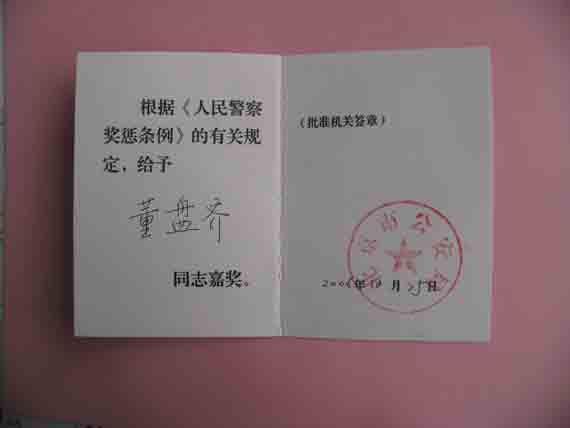 根据《人民警察
奖惩条例》的有关规
定，给予
董盘齐
同志嘉奖。
（批准机关签章）
北京市公安局
年 月 日